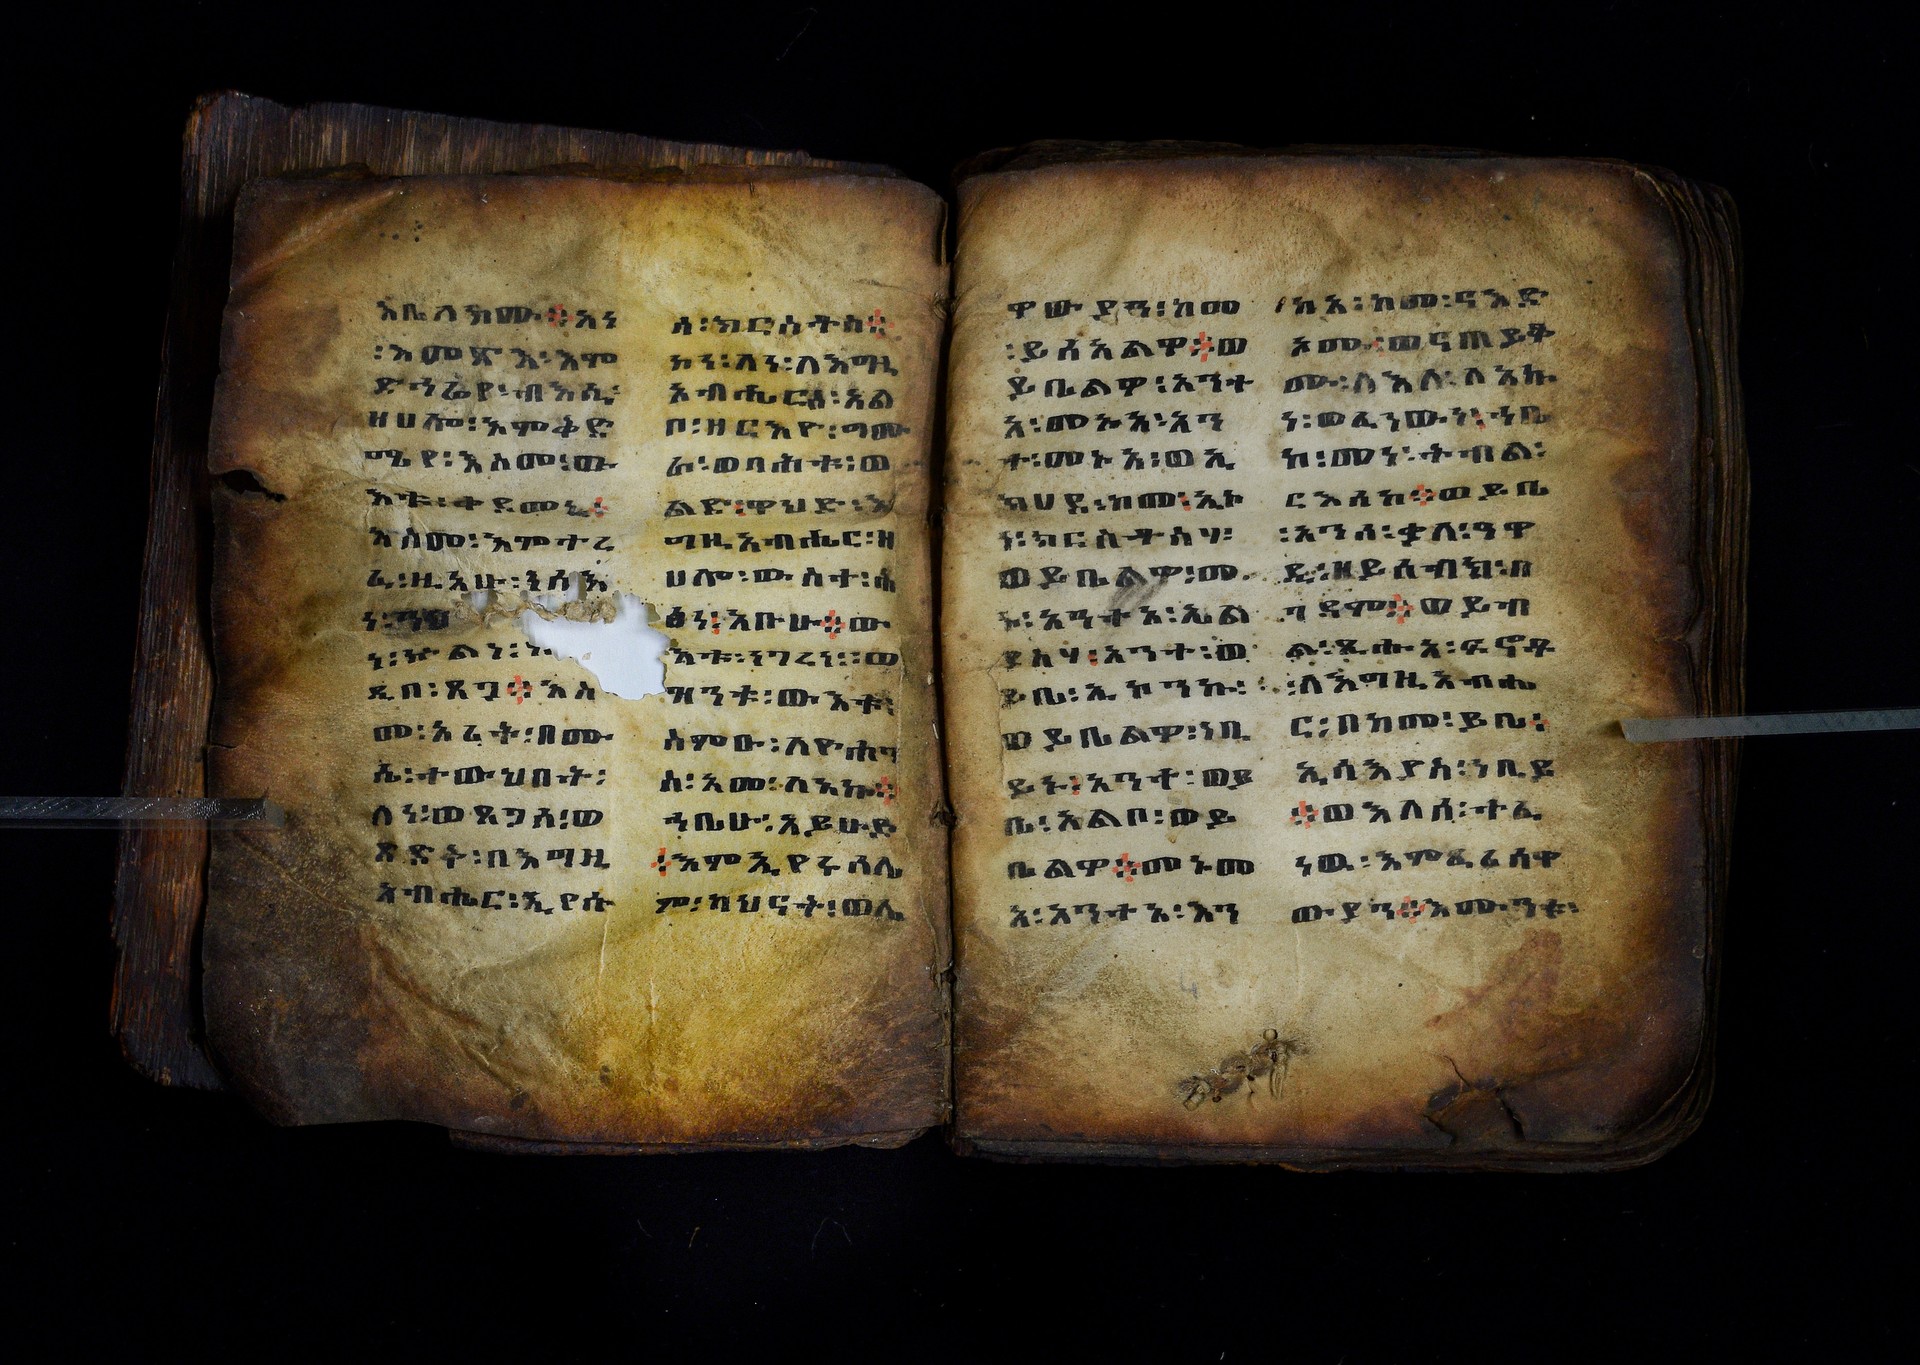 እቤለክሙ፨እን
፡እመጽእ፡እም
ድኅሬየ፡ብእሲ፡
ዘሀሎ፡እምቅድ
ሜየ፡እስመ፡ው
እቱ፡ቀደመኒ፨
እስመ፡እምተረ
ፈ፡ዚአሁ፡ነሰእ
ነ፡
ነ፡ኵልነ፡
ዲበ፡ጸጋ፨እስ
መ፡ኦሪት፡በሙ
ሴ፡ተውህበት፡
ለነ፡ወጸጋሰ፡ወ
ጽድቅ፡በእግዚ
አብሔር፡ኢየሱ
ሰ፡ክርስቶስ፨
ኮነ፡ለነ፡ለእግዚ
አብሔርሰ፡አል
ቦ፡ዘርእዮ፡ግሙ
ራ፡ወባሕቱ፡ወ
ልድ፡ዋህድ፡እ
ግዚአብሔር፡ዘ
ሀሎ፡ውስተ፡ሕ
ፅነ፡አቡሁ፨ው
እቱ፡ነገረነ፡፡ወ
ዝንቱ፡ውእቱ፡
ስምዑ፡ለዮሐን
ስ፡አመ፡ለአኩ፨
ኀቤሁ፡አይሁድ
፨እምኢየሩሳሌ
ም፡ካህናት፡ወሌ
ዋውያን፡ከመ
፡ይሰአልዎ፨ወ
ይቤልዎ፡አንተ
አ፡መኑአ፡አን
ተ፡መኑአ፡ወኢ
ክህደ፡ከመ፡ኢኮ
ነ፡ክርስቶስሃ፡
ወይቤልዎ፡መ
ኑ፡አንተአ፡ኤል
ያስሃ፡አንተ፡ወ
ይቤ፡ኢኮንኩ፡
ወይቤልዎ፡ነቢ
ይኑ፡አንተ፡ወይ
ቤ፡አልቦ፡ወይ
ቤልዎ፨መኑመ
አ፡አንተአ፡እን
ከአ፡ከመ፡ናእድ
እሙ፡ወናጠይቆ
ሙ፡ለእለ፡ለአኩ
ነ፡ወፈነውነ፡ኀቤ
ከ፡መነ፡ትብል፡
ርእሰከ፨ወይቤ
፡አንሰ፡ቃለ፡ዓዋ
ዲ፡ዘይሰብክ፡በ
ገዳም፨ወይብ
ል፡ጺሑአ፡ፍኖቶ
፡ለእግዚአብሔ
ር፡በከመ፡ይቤ፡
ኢሳይያስ፡ነቢይ
፨ወእለሰ፡ተፈ
ነዉ፡እምፈሪሳዋ
ውያን፨እሙንቱ፡